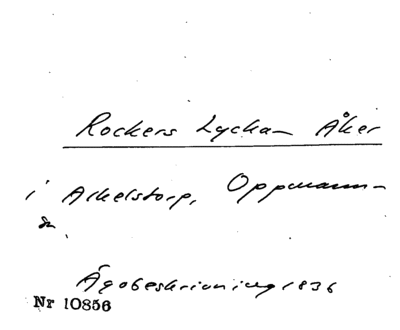 Rockers Lyckan Åker
i Arkelstorp, Oppmanna
sn.
Ägobeskrivning 1836
Nr 10856